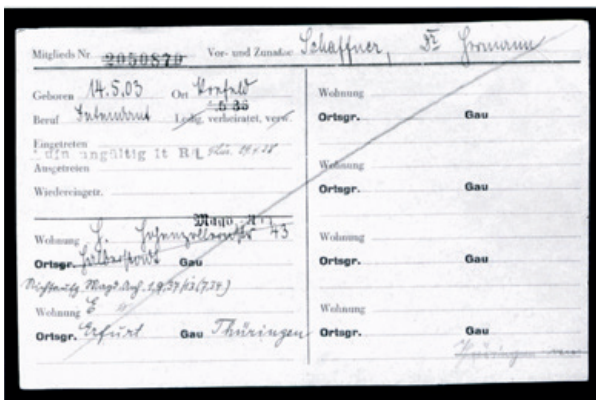 Mitglieds Nr. 2050870 Vor- und Zuname Schaffner, Dr Hermann
Geboren 14.5.03 Ort Krefeld
Beruf Intendant Ledig, verheiratet, verw.
Eingetreten
ungültig lt RL
Ausgetreten
Wiedereingetr.
Wohnung H. Hohenzollernstr 43
Ortsgr. Halberstadt Gau
Wohnung E
Ortsgr. Erfurt Gau Thüringen
Wohnung
Ortsgr. Gau
Wohnung
Ortsgr. Gau
Wohnung
Ortsgr. Gau
Wohnung
Ortsgr. Gau